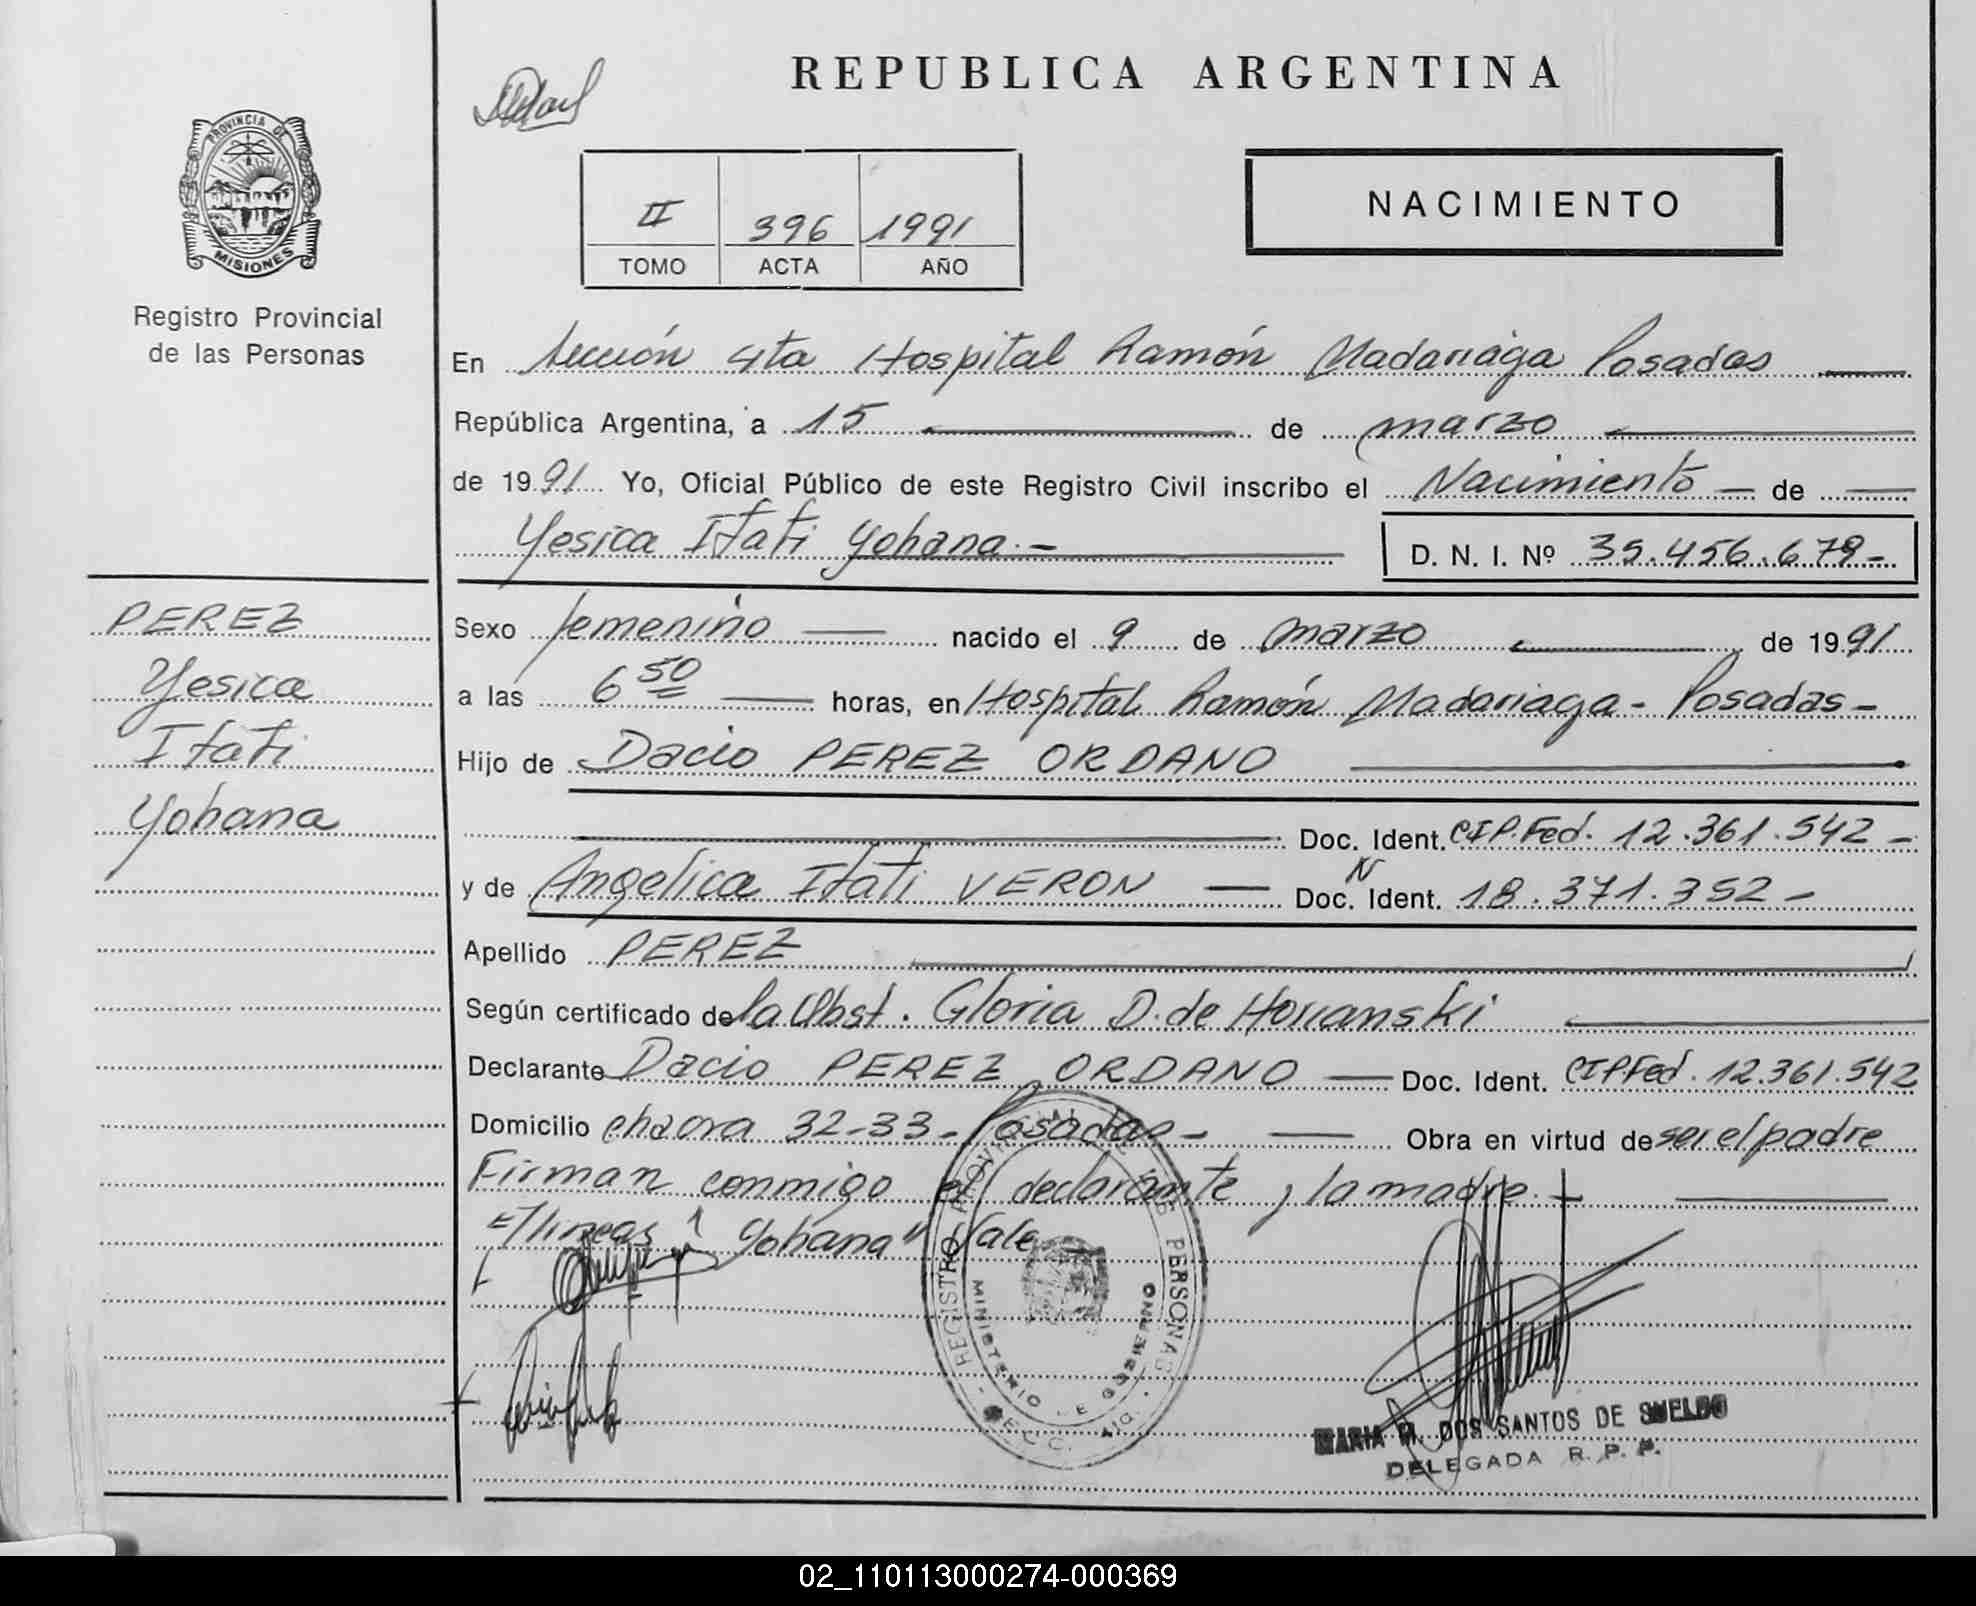 REPUBLICA ARGENTINA
PROVINCIA DE
MISIONES
Registro Provincial
de las Personas
II 396 1991
TOMO ACTA AÑO
NACIMIENTO
En Sección 4ta Hospital Ramón Madariaga Posadas
República Argentina, a 15 de marzo
de 1991 Yo, Oficial Público de este Registro Civil inscribo el Nacimiento de
Yesica Itati Yohana.-
D. N. I. Nº 35.456.679-
PEREZ
Yesica
Itati
Yohana
Sexo femenino nacido el 9 de marzo de 1991
a las 6 50 horas, en Hospital Ramón Madariaga - Posadas -
Hijo de Dacio PEREZ ORDANO
Doc. Ident. CIP.Fed. 12.361.542 -
y de Angelica Itati VERON Doc. N Ident. 18.371.352 -
Apellido PEREZ
Según certificado de la Obst. Gloria D. de
Declarante Dacio PEREZ ORDANO Doc. Ident. CIPFed. 12.361.542
Domicilio chacra 32-33 - Posadas - Obra en virtud de ser el padre
Firman conmigo el declarante y la madre.
E/lineas "Yohana" Vale
REGISTRO PROVINCIAL DE LAS PERSONAS
MINISTERIO DE GOBIERNO
MARIA M. DOS SANTOS DE SUELDO
DELEGADA R. P. P.
02_110113000274-000369